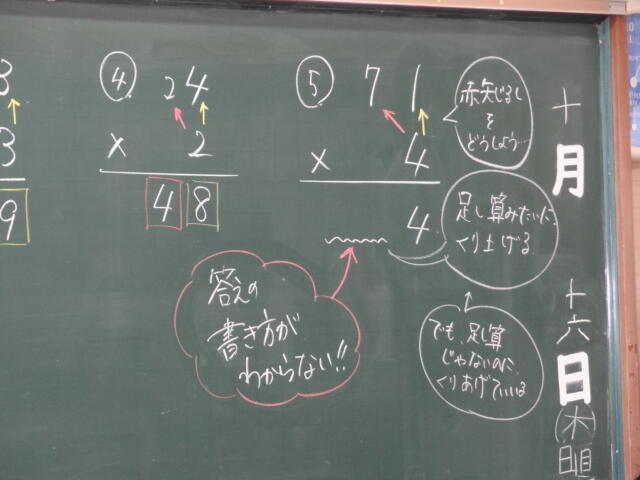 3
3
9
④ 24
× 2
48
⑤ 71
× 4
4
赤矢じるし
を
どうしよう…
足し算みたいに、
くり上げる
でも、足し算
じゃないのに
くりあげていいの
答えの
書き方が
わからない!!
十
月
十
六
日
(木)
日直